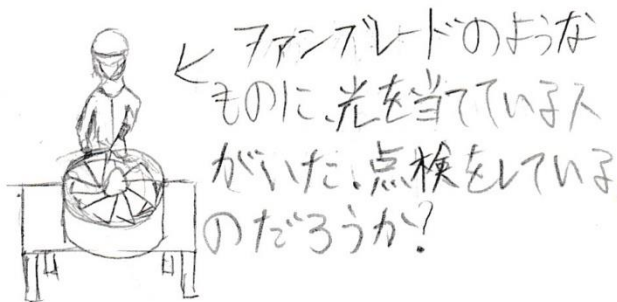 ファンブレードのような
ものに、光を当てている人
がいた、点検をしている
のだろうか?